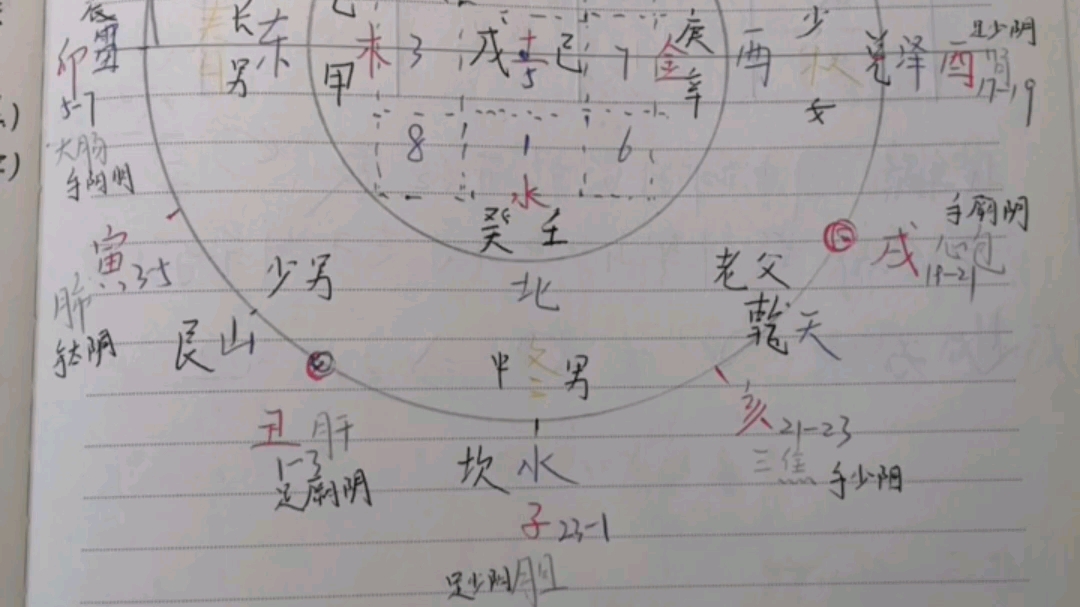 长 东 男
卯
5-7
大肠
手阳明
木 3 戊 土 5 己 7 金
甲
庚
辛
酉 少 女
兑 泽 酉
足少阴
肾
17-19
8 1 6
水
癸 壬
北
中 冬 男
寅 3-5
肺
手太阴
少男
艮 山
老父
乾 天
戌
手厥阴
心包
19-21
丑 肝
1-3
足厥阴
坎 水
子 23-1
足少阳 胆
亥 21-23
三焦 手少阳